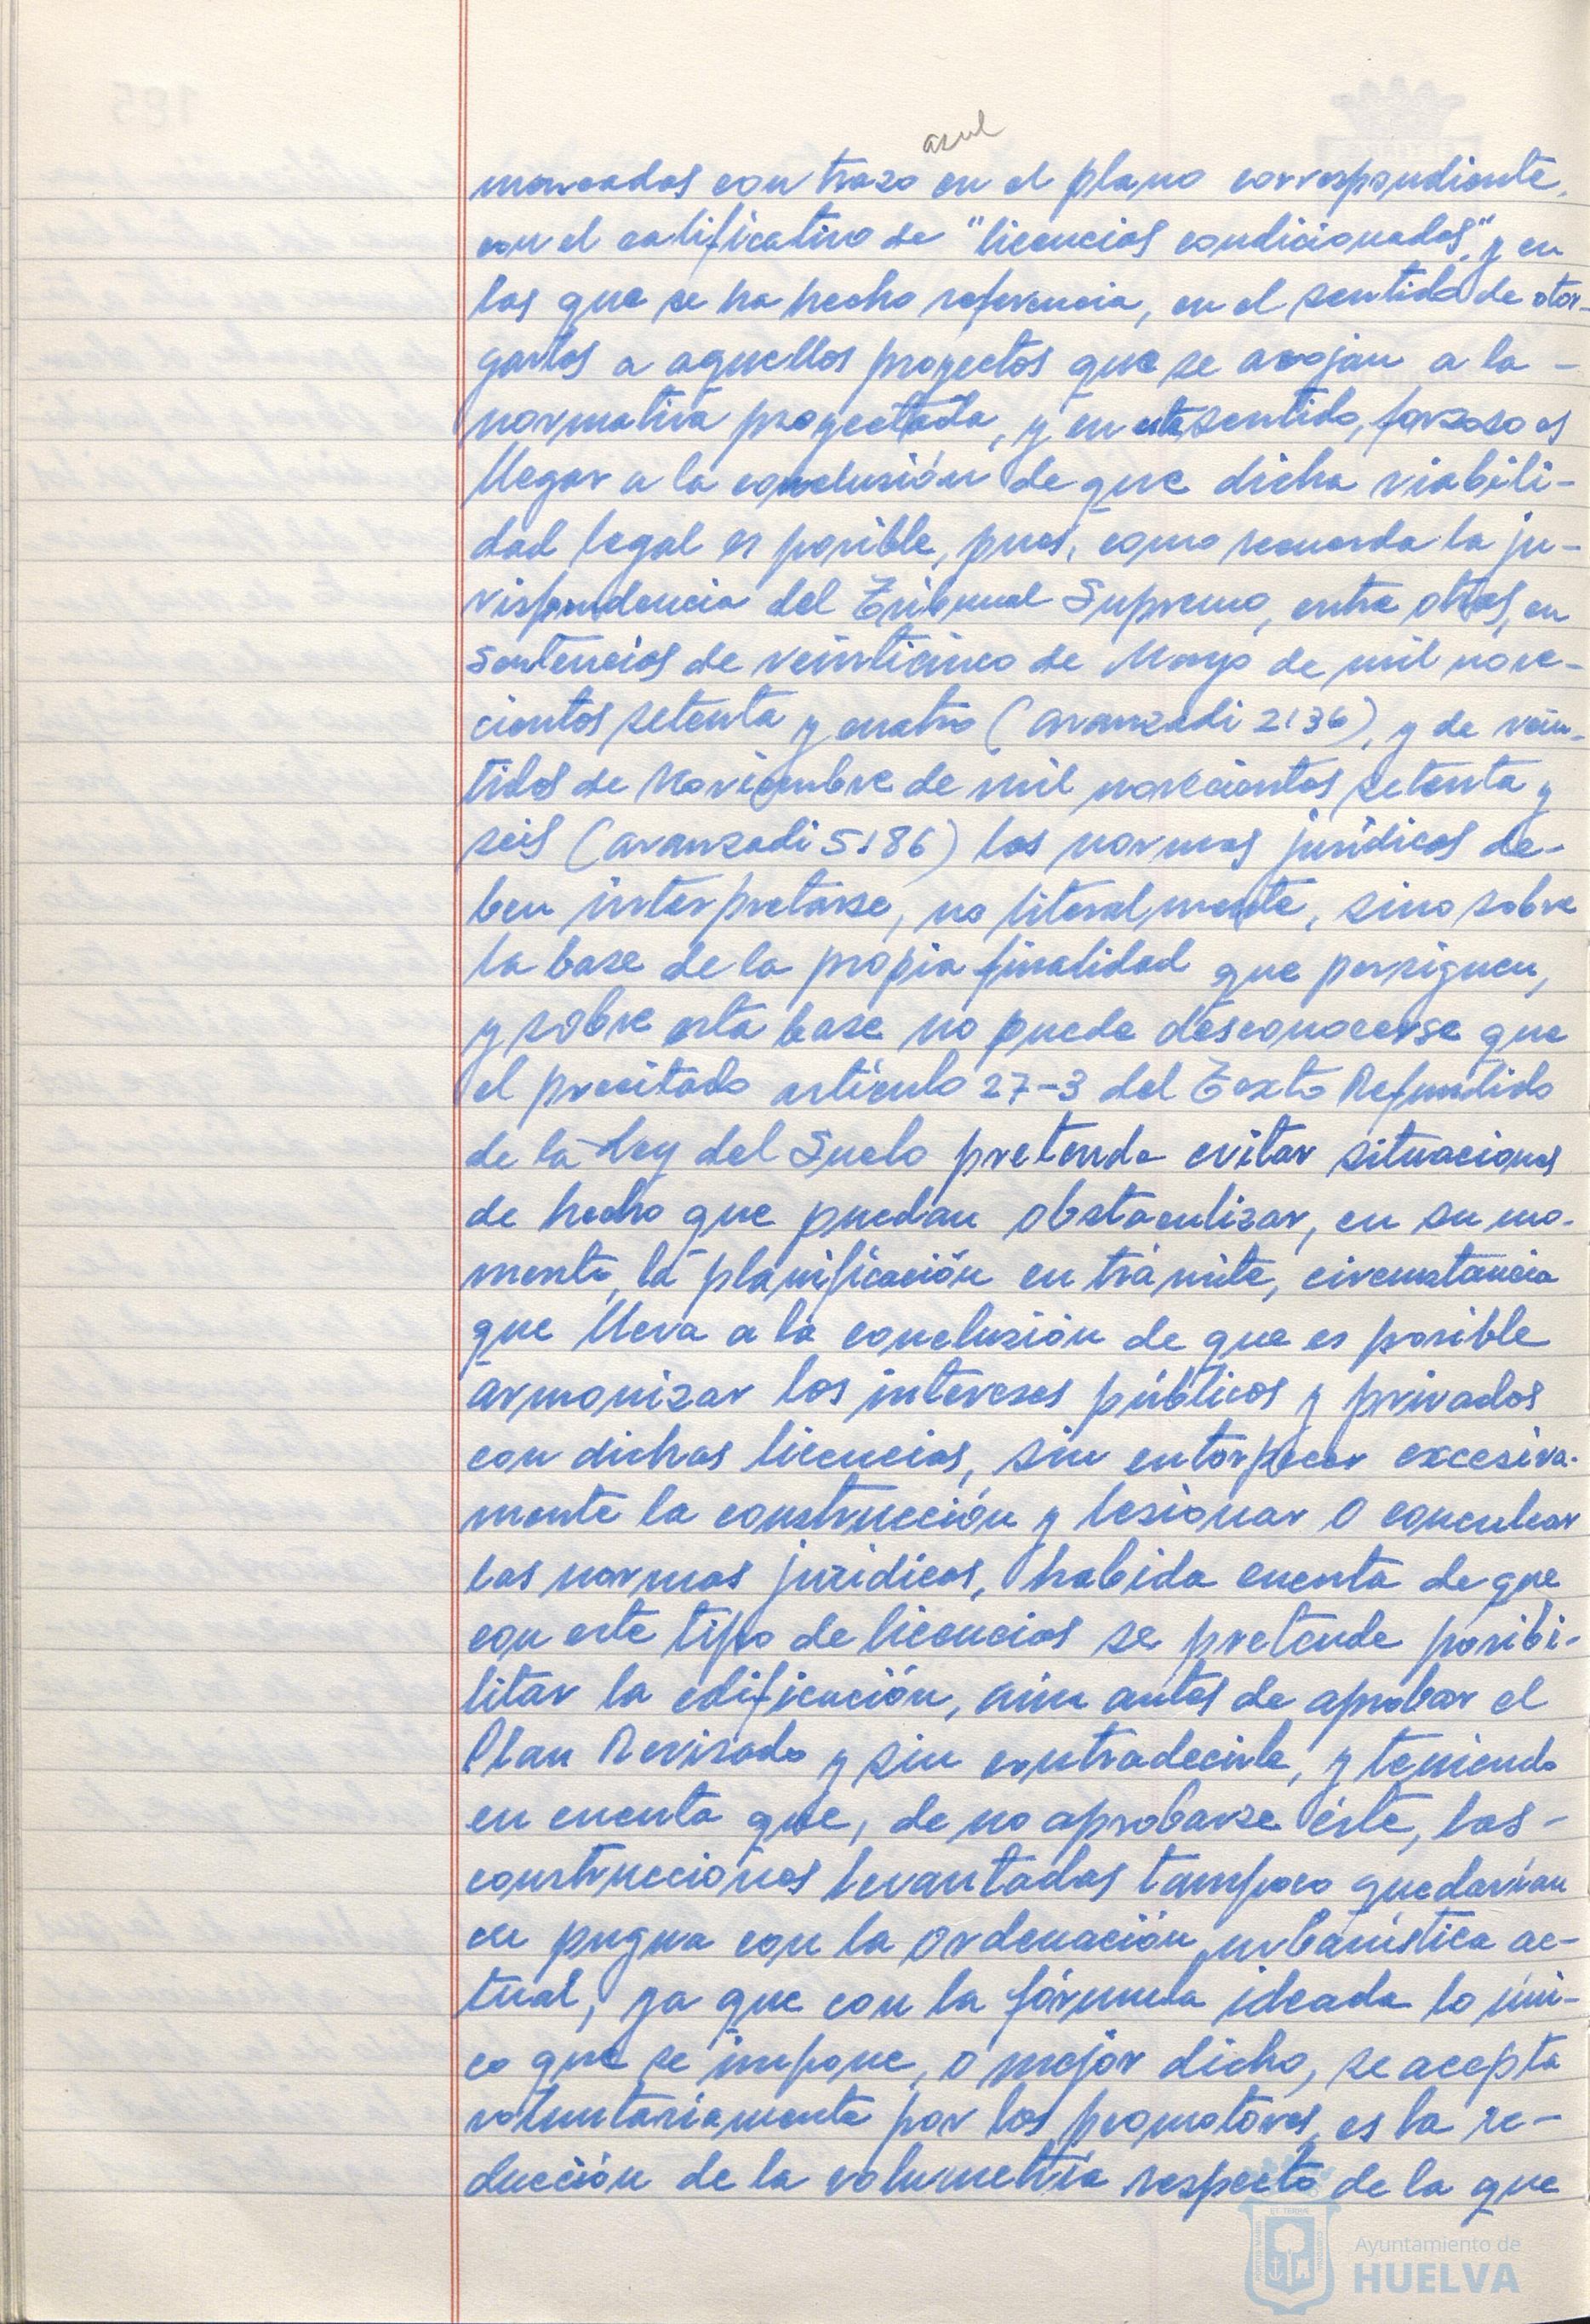 azul
marcadas con trazo en el plano correspondiente,
con el calificativo de "licencias condicionadas", y en
las que se ha hecho referencia, en el sentido de otor-
garlas a aquellos proyectos que se acojan a la -
normativa proyectada, y en este sentido, forzoso es
llegar a la conclusión de que dicha viabili-
dad legal es posible, pues, como recuerda la ju-
rispudencia del Tribunal Supremo, entre otras, en
sentencias de veinticinco de Mayo de mil nove-
cientos setenta y cuatro (aranzadi 2136), y de vein-
tidos de Noviembre de mil novecientos setenta y
seis (aranzadi 5186) las normas jurídicas de-
ben interpretarse, no literalmente, sino sobre
la base de la propia finalidad que persiguen,
y sobre esta base no puede desconocerse que
el precitado artículo 27-3 del Texto Refundido
de la Ley del Suelo pretende evitar situaciones
de hecho que puedan obstaculizar, en su mo-
mento, la planificación en trámite, circunstancia
que lleva a la conclusión de que es posible
armonizar los intereses públicos y privados
con dichas licencias, sin entorpecer excesiva-
mente la construcción y lesionar o conculcar
las normas jurídicas, habida cuenta de que
con este tipo de licencias se pretende posibi-
litar la edificación, aún antes de aprobar el
Plan Revisado y sin contradecirle, y teniendo
en cuenta que, de no aprobarse éste, las -
construcciones levantadas tampoco quedarían
en pugna con la ordenación urbanística ac-
tual, ya que con la fórmula ideada lo úni-
co que se impone, o mejor dicho, se acepta
voluntariamente por los promotores, es la re-
ducción de la volumetría respecto de la que
Ayuntamiento de
HUELVA